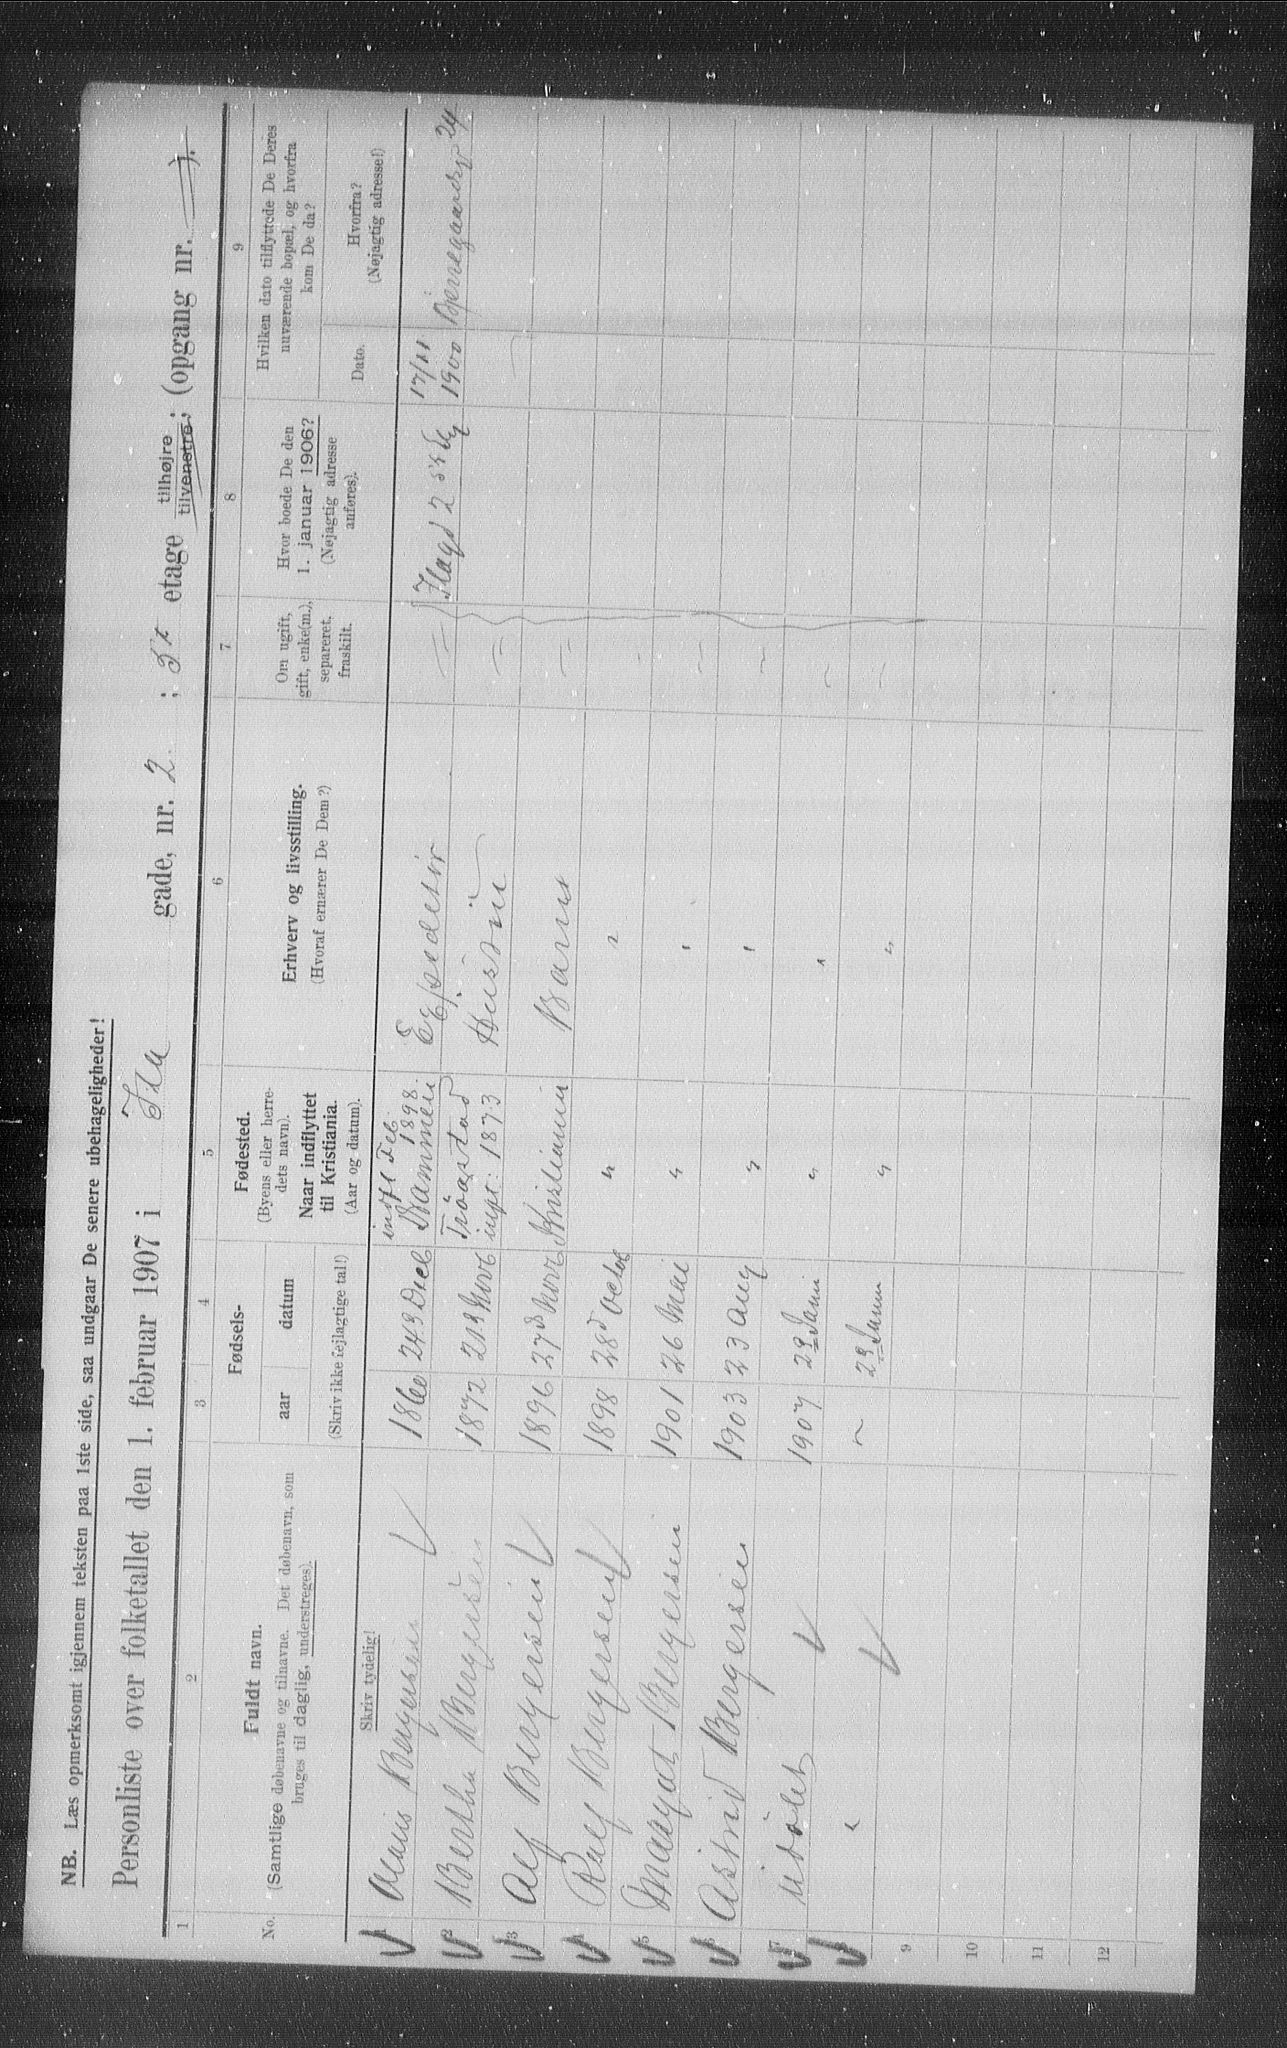 NB. Læs opmerksomt igjennem teksten paa 1ste side, saa undgaar De senere ubehageligheder!
Personliste over folketallet den 1. februar 1907 i Ila gade, nr. 2 ; 3 etage tilhøjre tilvenstre; (opgang nr. ).
1 2 3 4 5 6 7 8 9
No.
Fuldt navn.
(Samtlige døbenavne og tilnavne. Det døbenavn, som
bruges til daglig, understreges).
Fødsels-
aar datum
Fødested.
(Byens eller herre-
dets navn).
Naar indflyttet
til Kristiania.
(Aar og datum).
Erhverv og livsstilling.
(Hvoraf ernærer De Dem?)
Om ugift,
gift, enke(m.),
separeret,
fraskilt.
Hvor boede De den
1. januar 1906?
(Nøjagtig adresse
anføres).
Hvilken dato tilflyttede De Deres
nuværende bopæl, og hvorfra
kom De da?
Dato.
Hvorfra?
(Nøjagtig adresse!)
Skriv tydelig!
(Skriv ikke fejlagtige tal!)
1 Bergersen 1860 24 Feb 1898 Drammen 2 17/11 1900 Bjerregaardsg 24
2 Bertha Bergersen 1872 21 Novb 1873 Hustru
3 Alf Bergersen 1896 27d Novb Kristiania Barn
4 Ralf Bergersen 1898 28d Octob " "
5 Margat Bergersen 1901 26 Mai " "
6 Astrid Bergersen 1903 23 Aug " "
7 Udøbt 1907 29 Janu " "
8 " " 29 Janu " "
9
10
11
12